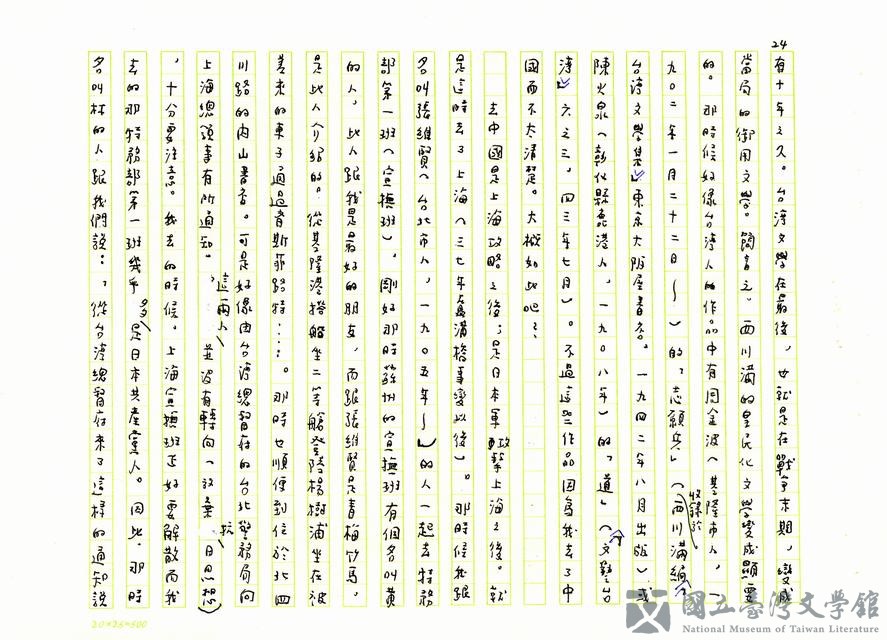 24
有十年之久。台湾文學在最後,也就是在戰爭末期,變成
當局的御用文學。簡言之。西川滿的皇民化文學變成顯要
的。那時候好像台湾人的作品中有周金波(基隆市人,一
九〇二年一月二十二日~)的「志願兵」(收錄於西川滿編「
台湾文學集」東京大阪屋書店。一九四二年八月出版)或
陳火泉(彰化縣鹿港人,一九〇八年)的「道」(「文藝台
湾」六之三,四三年七月)。不過這些作品因為我去了中
國而不大清楚。大概如此吧?
去中國是上海攻略之後;是日本軍攻擊上海之後。就
是這時去了上海(三七年蘆溝橋事變以後)。那時候我跟
名叫張維賢(台北市人,一九〇五年~)的人一起去特務
部第一班(宣撫班)。剛好那時蘇州的宣撫班有個名叫黃
的人,此人跟我是最好的朋友,而跟張維賢是青梅竹馬。
是此人介紹的。從基隆港搭船坐二等艙登陸楊樹浦坐在被
差來的車子通過青斯菲路特…。那時也順便到位於北四
川路的內山書店。可是好像由台湾總督府的台北警務局向
上海總領事有所通知。「這兩人並沒有轉向(放棄抗日思想)
,十分要注意。我去的時候。上海宣撫班正好要解散而我
去的那特務部第一班幾乎多是日本共產黨人。因此,那時
名叫林的人跟我們說:「從台湾總督府來了這樣的通知說
20×25=500
國立臺灣文學館
National Museum of Taiwan Literature